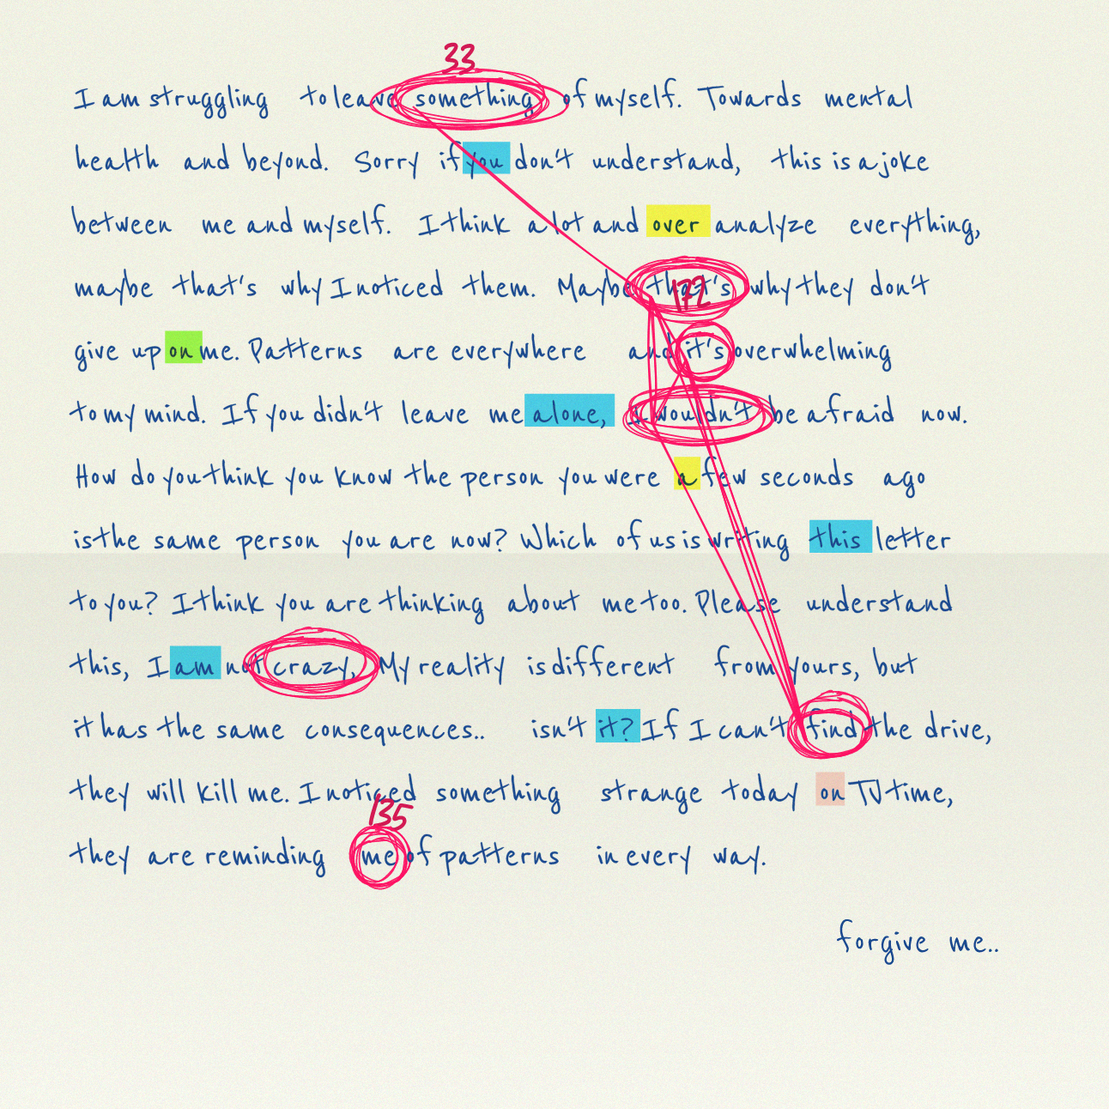 33
I am struggling to leave something of myself. Towards mental
health and beyond. Sorry if you don't understand, this is a joke
between me and myself. I think a lot and over analyze everything,
maybe that's why I noticed them. Maybe that's why they don't
172
give up on me. Patterns are everywhere and it's overwhelming
to my mind. If you didn't leave me alone, I wouldn't be afraid now.
How do you think you know the person you were a few seconds ago
is the same person you are now? Which of us is writing this letter
to you? I think you are thinking about me too. Please understand
this, I am not crazy, My reality is different from yours, but
it has the same consequences.. isn't it? If I can't find the drive,
they will kill me. I noticed something strange today on TV time,
135
they are reminding me of patterns in every way.
forgive me..